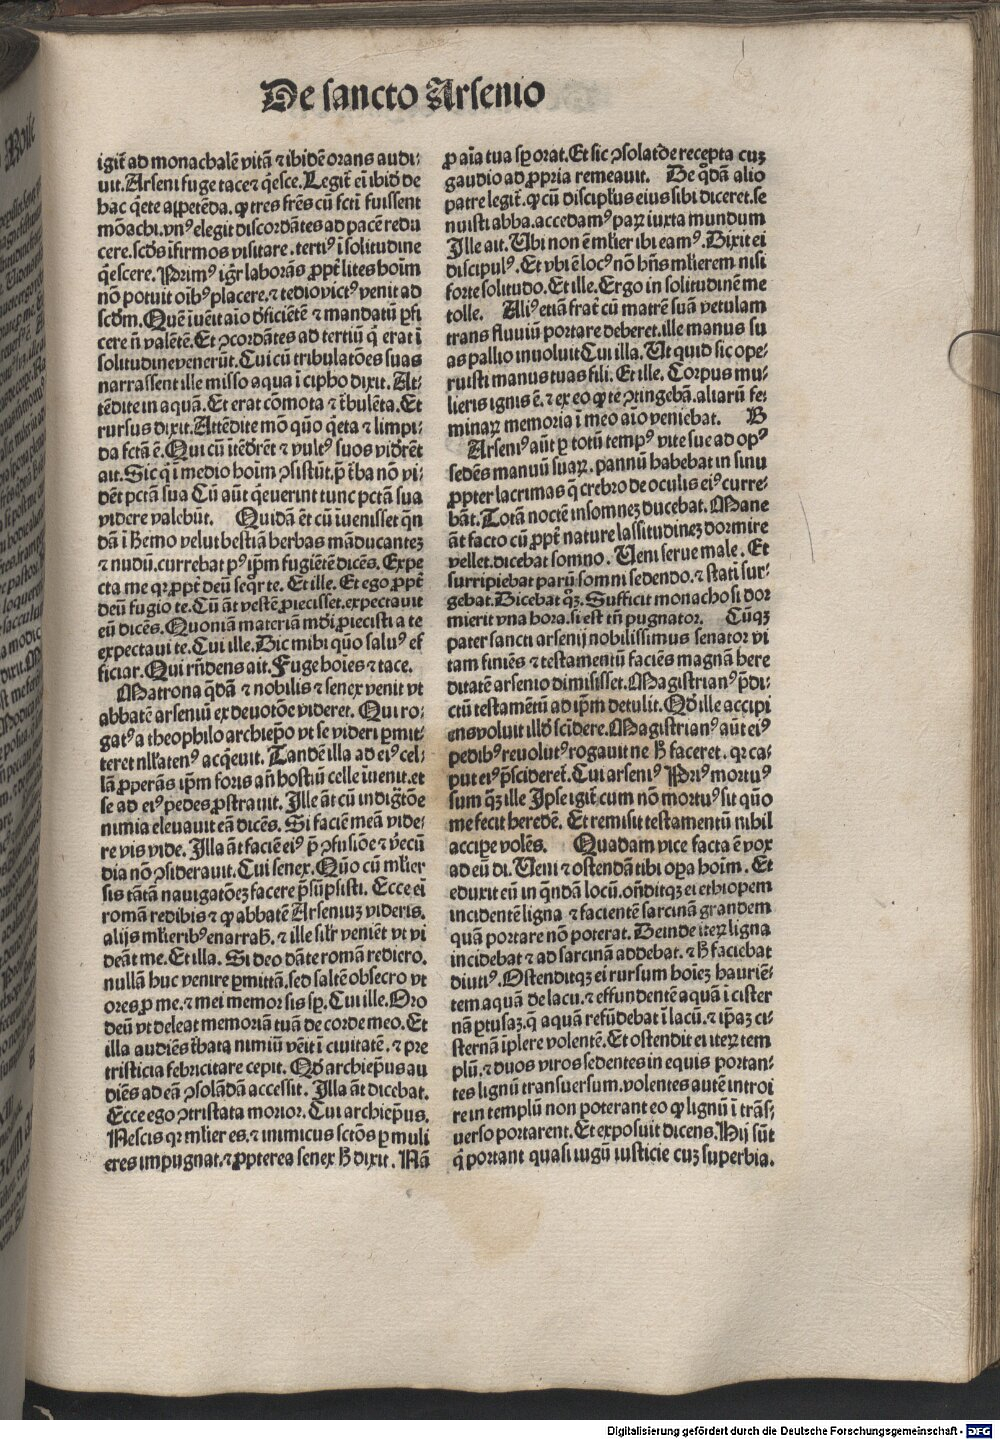 De sancto Arsenio
igit̃ ad monachalē vitā ⁊ ibidē orans audi-
uit. Arseni fuge tace ⁊ q̄esce. Legit̃ eī ibid̄ de
hac q̄ete appetēda. ꝙ tres fr̄es cū fcti fuissent
mōachi. vnꝰ elegit discordātes ad pacē redu
cere. scd̄s īfirmos visitare. tertiꝰ ī solitudine
q̄escere. Primꝰ igr̄ laborās ꝓpt̃ lites hoīm
nō potuit oībꝰ placere. ⁊ tedio victꝰ venit ad
scdm̄. Quē īuēit aīo d̄ficiētē ⁊ mandatū ꝑfi
cere ñ valētē. Et ꝯcordātes ad tertiū q̄ erat ī
solitudine venerūt. Cui cū tribulatōes suas
narrassent ille misso aqua ī cipho dixit. At-
tēdite in aquā. Et erat cōmota ⁊ t̃bulēta. Et
rursus dixit. Attēdite mō quō q̄eta ⁊ limpi-
da fctā ē. Qui cū itēdr̄et ⁊ vultꝰ suos vidr̄ēt
ait. Sic q̄ ī medio hoīm ꝯsistūt. p̄ t̃ba nō vi-
dēt pctā sua Cū aūt q̄euerint tunc pctā sua
videre valebūt. Quidā ēt cū īuenisset q̄n
dā ī h̄emo velut bestiā herbas māducanteʒ
⁊ nudū. currebat pꝰ ip̄m fugiētē dicēs. Expe
cta me qꝛ ꝓpt̃ deū seq̄r te. Et ille. Et ego ꝓpt̃
deū fugio te. Cū āt vestē ꝓiecisset. expectauit
eū dicēs. Quoniā materiā mūdi ꝓiecisti a te
expectaui te. Cui ille. Dic mihi quō saluꝰ ef
ficiar. Qui rn̄dens ait. Fuge hoīes ⁊ tace.
Matrona q̄dā ⁊ nobilis ⁊ senex venit vt
abbatē arseniū ex deuotōe videret. Qui ro-
gatꝰ a theophilo archiep̄o vt se videri ꝑmit-
teret nllaten̄ꝰ acq̄euit. Tandē illa ad eiꝰ cel-
lā ꝓperās ip̄m foris añ hostiū celle īuenit. et
se ad eiꝰ pedes ꝓstrauit. Ille āt cū indig̃tōe
nimia eleuauit eā dicēs. Si faciē meā vide-
re vis vide. Illa āt faciē eiꝰ p̄ ꝯfusiōe ⁊ v̄ecū
dia nō ꝯsiderauit. Cui senex. Quō cū ml̄ier
sis tātā nauigatōeʒ facere p̄sūpsisti. Ecce ei
romā redibis ⁊ ꝙ abbatē Arseniuʒ videris.
alijs ml̄ieribꝰ enarrab. ⁊ ille sil̄r veniēt vt vi
deāt me. Et illa. Si deo dāte romā rediero.
nullā huc venire ꝑmittā. sed saltē obsecro vt
ores ꝓ me. ⁊ mei memor sis sp̄. Cui ille. Oro
deū vt deleat memoriā tuā de corde meo. Et
illa audiēs h̄ t̃bata nimiū vēit ī ciuitatē. ⁊ pre
tristicia febricitare cepit. Qd̄ archiep̄us au
diēs ad eā ꝯsolādā accessit. Illa āt dicebat.
Ecce ego ꝯtristata morior. Cui archiep̄us.
Nescis qꝛ ml̄ier es. ⁊ inimicus sctōs ꝑ muli
eres impugnat. ⁊ ꝓpterea senex h̄ dixit. Nā
ꝓ aīa tua sp̄ orat. Et sic ꝯsolatōe recepta cuʒ
gaudio ad ꝓpria remeauit. De q̄dā alio
patre legit̃. ꝙ cū discipl̄us eius sibi diceret. se
nuisti abba. accedamꝰ paꝝ iuxta mundum
Ille ait. Vbi non ē ml̄ier ibi eamꝰ. Dixit ei
discipulꝰ. Et vbi ē locꝰ nō hn̄s ml̄ierem nisi
forte solitudo. Et ille. Ergo in solitudinē me
tolle. Aliꝰ etiā frat̃ cū matrē suā vetulam
trans fluuiū portare deberet. ille manus su
as pallio inuoluit Cui illa. Ut quid sic ope-
ruisti manus tuas fili. Et ille. Corpus mu-
lieris ignis ē. ⁊ ex eo ꝙ te ꝯtingebā. aliarū fe-
minaꝝ memoria ī meo aīo veniebat. B
Arseniꝰ aūt ꝑ totū tempꝰ vite sue ad opꝰ
sedēs manuū suaꝝ. pannū habebat in sinu
ꝓpter lacrimas q̄ crebro de oculis eiꝰ curre-
bāt. Totā noctē insomneʒ ducebat. Mane
āt facto cū ꝓpt̃ nature lassitudineʒ dormire
vellet. dicebat somno. Veni serue male. Et
surripiebat parū somni sedendo. ⁊ stati sur-
gebat. Dicebat qʒ. Sufficit monacho si dor
mierit vna hora. si est tn̄ pugnator. Cūqʒ
pater sancti arsenij nobilissimus senator vi
tam finiēs ⁊ testamentū faciēs magnā here
ditatē arsenio dimisisset. Magistrianꝰ p̄di-
ctū testamētū ad ip̄m detulit. Qd̄ ille accipi
ens voluit illd̄ scīdere. Magistrianꝰ aūt eiꝰ
pedibꝰ reuolutꝰ rogauit ne h̄ faceret. qꝛ ca-
put eiꝰ p̄scideret̃. Cui arseniꝰ Priꝰ mortuꝰ
sum qʒ ille Ipse igit̃ cum nō mortuꝰ sit quō
me fecit heredē. Et remisit testamentū nihil
accipe volēs. Quadam vice facta ē vox
ad eū di. Veni ⁊ ostendā tibi oꝑa hoīm. Et
eduxit eū in q̄ndā locū. oñditqʒ ei ethiopem
incidentē ligna ⁊ facientē sarcinā grandem
quā portare nō poterat. Deinde iteꝝ ligna
incidebat ⁊ ad sarcinā addebat. ⁊ h̄ faciebat
diutiꝰ. Ostenditqʒ ei rursum hoīeʒ hauriē-
tem aquā de lacu. ⁊ effundentē aquā ī cister
nā ꝑtusaʒ. q̄ aquā refūdebat ī lacū. ⁊ ip̄aʒ ci-
sternā īplere volentē. Et ostendit ei iteꝝ tem
plū. ⁊ duos viros sedentes in equis portan-
tes lignū transuersum. volentes autē introi
re in templū non poterant eo ꝙ lignū ī trās-
uerso portarent. Et exposuit dicens. Hij sūt
q̄ portant quasi iugū iusticie cuʒ superbia.
Digitalisierung gefördert durch die Deutsche Forschungsgemeinschaft - DFG